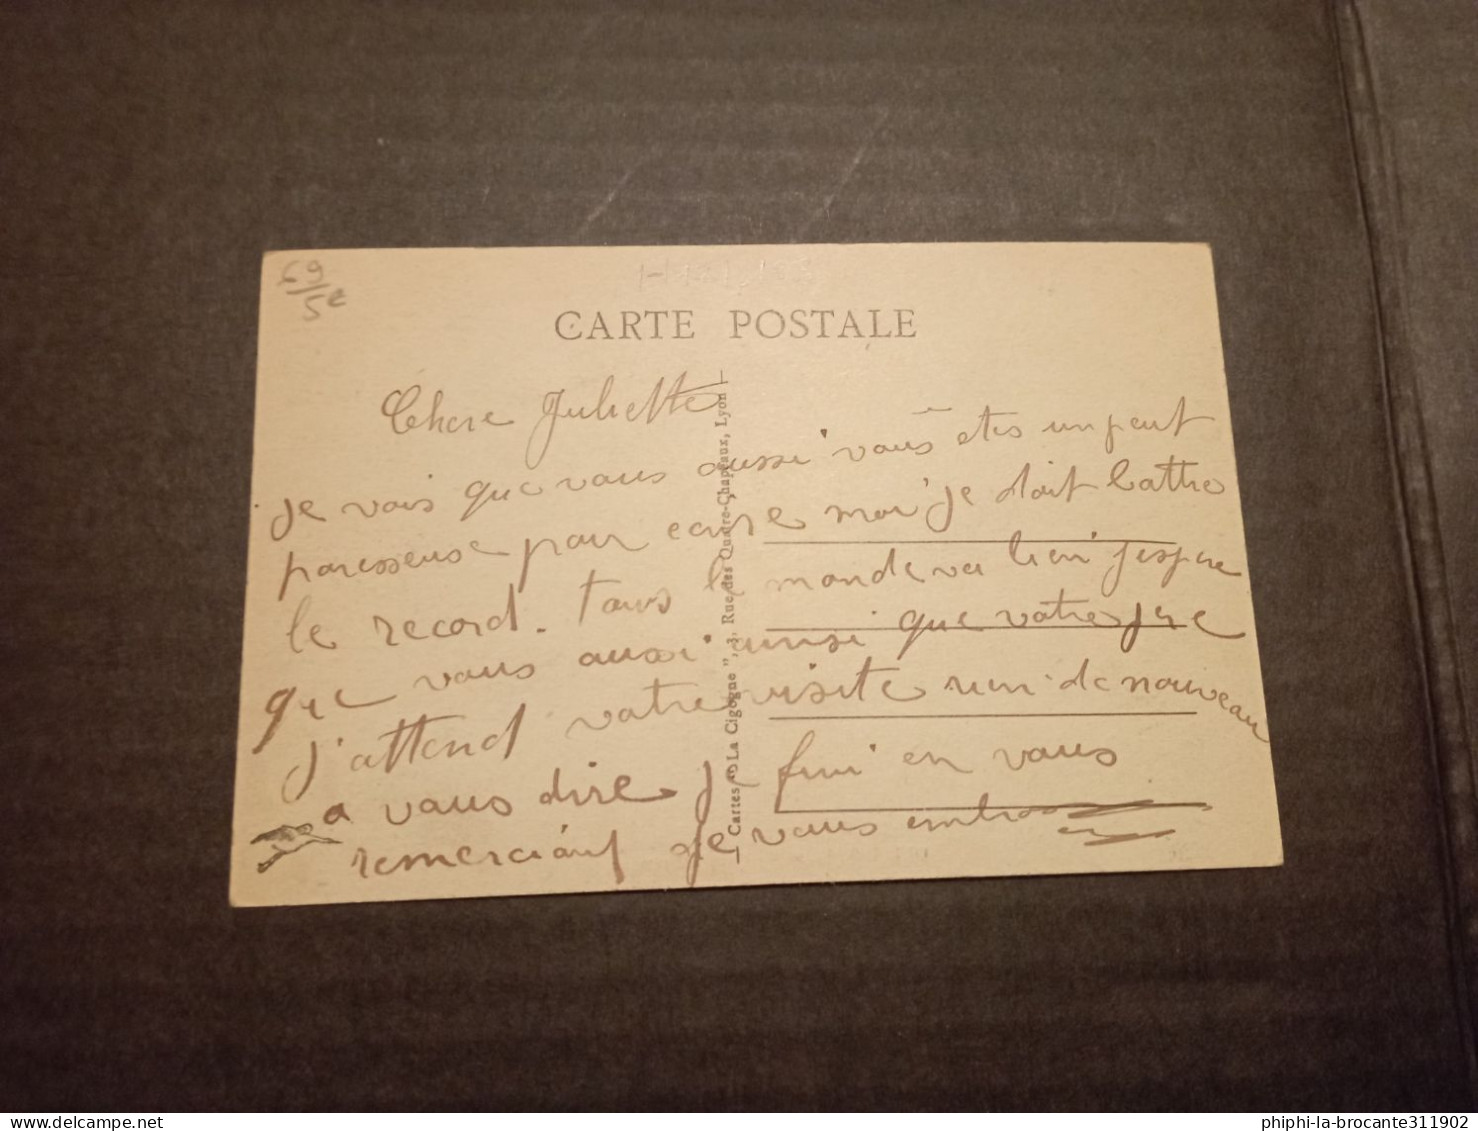 69/5e
CARTE POSTALE
Chere Juliette
je vois que vous aussi vous êtes un peut
paresseuse pour ecrire moi je doit battre
le record. tous le monde va bien j'espere
que vous aussi ainsi que votre pere
J'attend votre visite rien de nouveau
a vous dire je fini en vous
remerciant je vous embrasse
Cartes "La Cigogne", Rue des Quatre-Chapeaux, Lyon
www.delcampe.net
phiphi-la-brocante311902